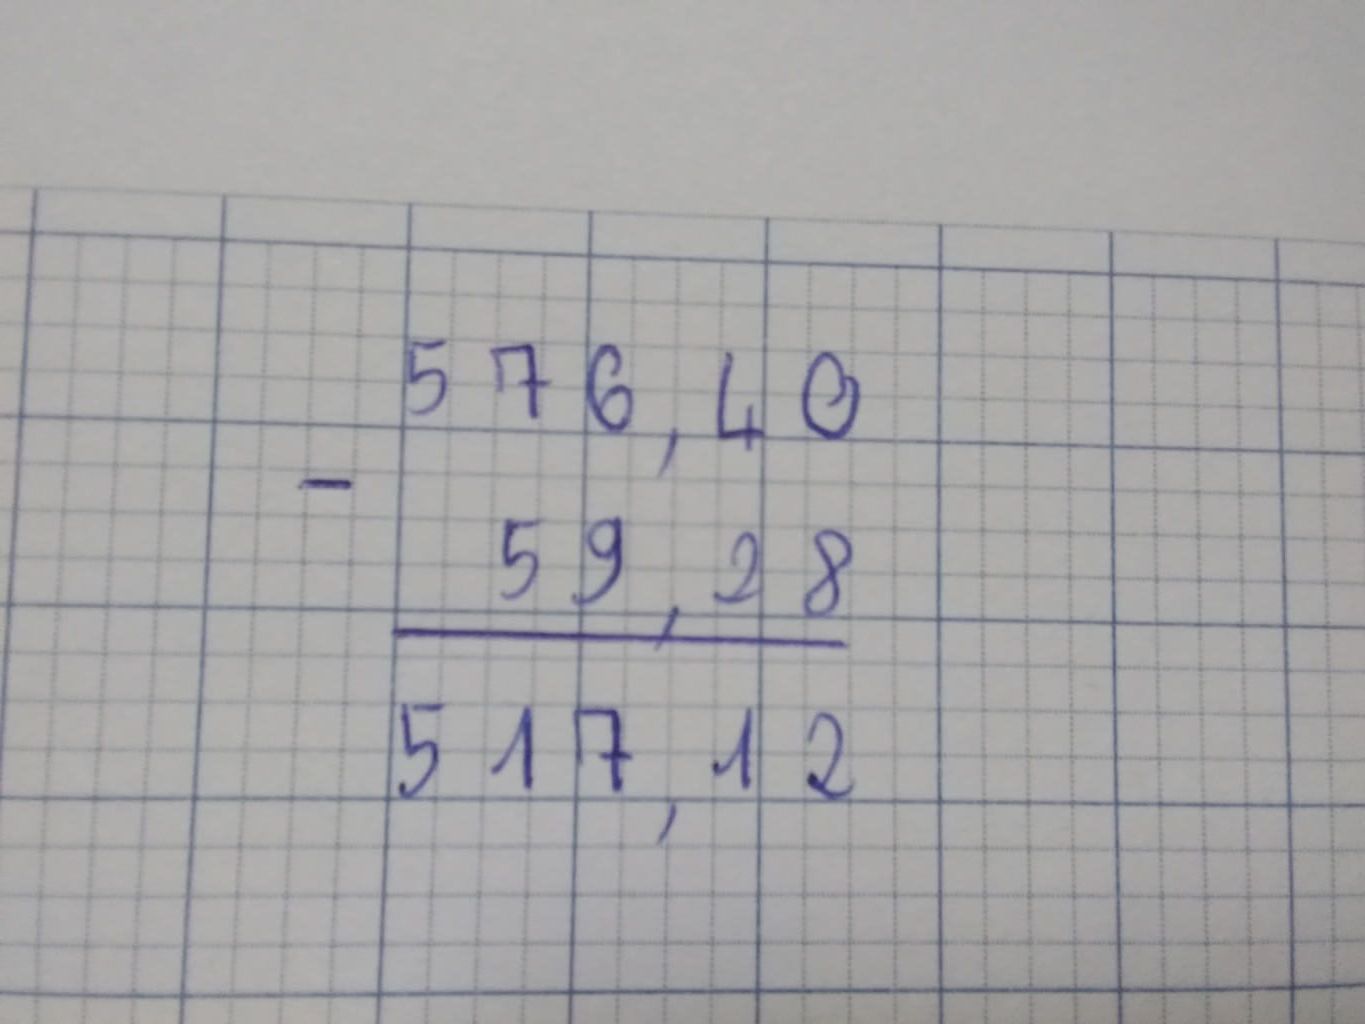 576,40
-
59,28
517,12